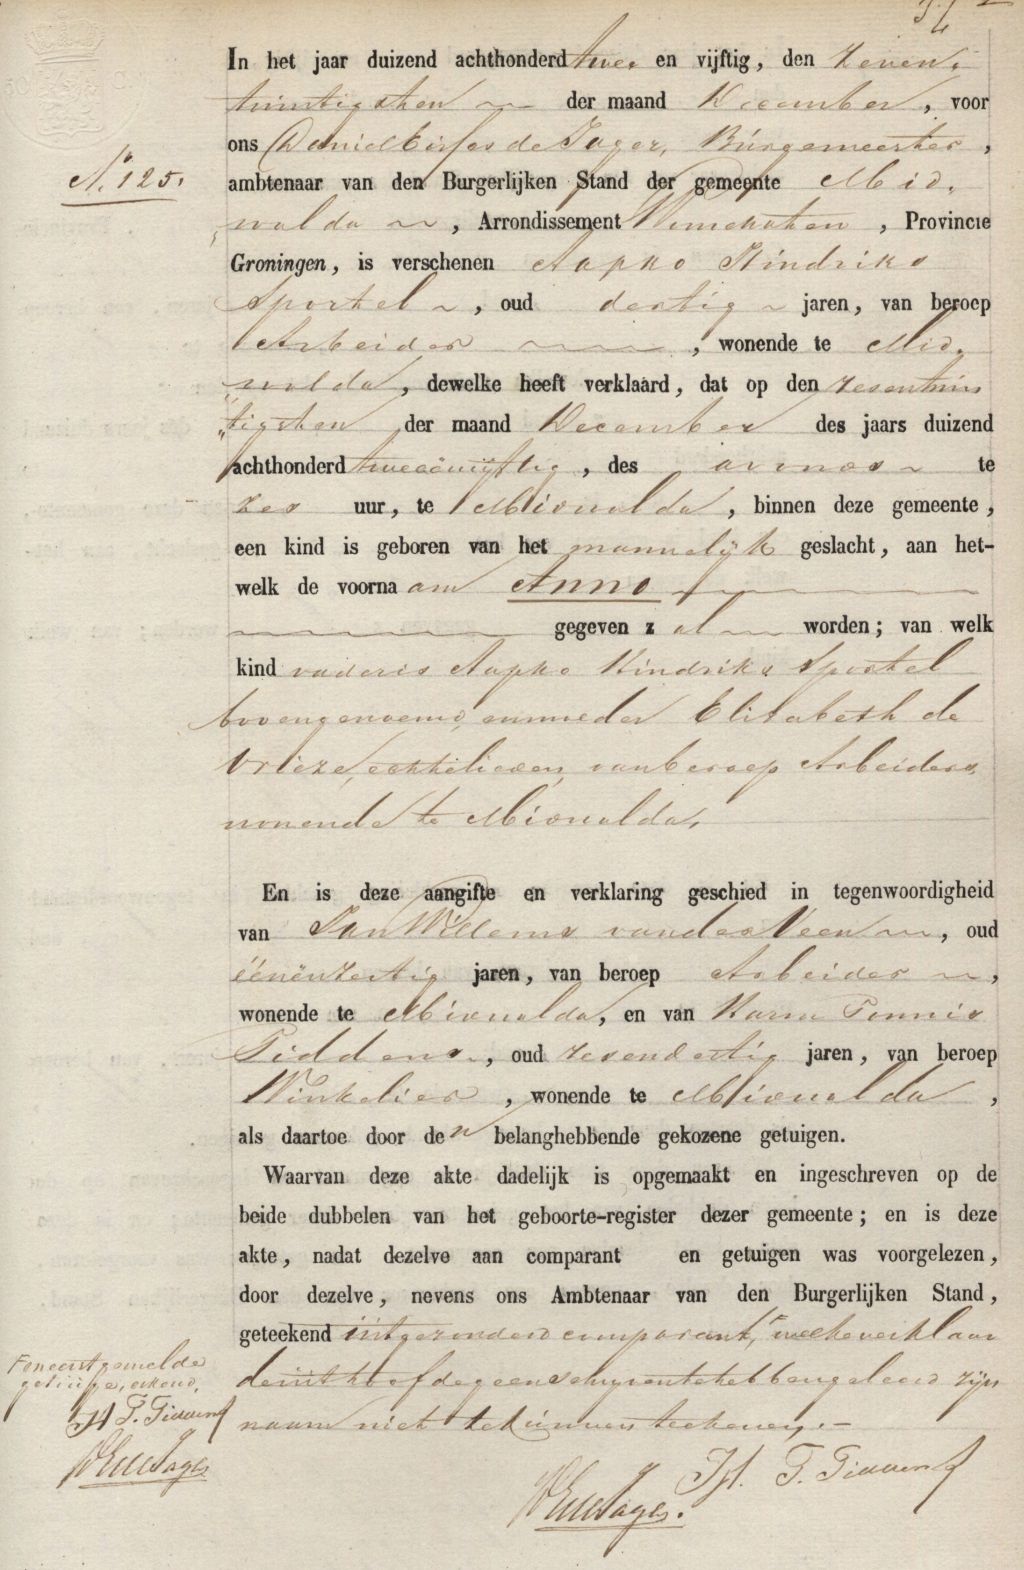 In het jaar duizend achthonderd twee en vijftig, den zeven-
twintigsten der maand December, voor
ons Daniel de Jager, Burgemeester,
N. 125.
ambtenaar van den Burgerlijken Stand der gemeente Mid-
wolda, Arrondissement Winschoten, Provincie
Groningen, is verschenen Aapko Hindriks
Sportel, oud dertig jaren, van beroep
Arbeider, wonende te Mid-
wolda, dewelke heeft verklaard, dat op den zesentwin
tigsten der maand December des jaars duizend
achthonderd tweeënvijftig, des avonds te
zes uur, te Midwolda, binnen deze gemeente,
een kind is geboren van het mannelijk geslacht, aan het-
welk de voornaam Anno
gegeven zal worden; van welk
kind vader is Aapko Hindriks Sportel
bovengenoemd, en moeder Elisabeth de
Vrieze, echtelieden, van beroep Arbeiders,
wonende te Midwolda.
En is deze aangifte en verklaring geschied in tegenwoordigheid
van Jan Willems van der Veen, oud
éénënzestig jaren, van beroep Arbeider,
wonende te Midwolda, en van Harm Tonnis
Tiddens, oud zesendertig jaren, van beroep
Winkelier, wonende te Midwolda,
als daartoe door den belanghebbende gekozene getuigen.
Waarvan deze akte dadelijk is opgemaakt en ingeschreven op de
beide dubbelen van het geboorte-register dezer gemeente; en is deze
akte, nadat dezelve aan comparant en getuigen was voorgelezen,
door dezelve, nevens ons Ambtenaar van den Burgerlijken Stand,
geteekend uitgezonderd comparant, welke verklaar
de uit hoofde geen schrijven te hebben geleerd zijn
naam niet te kunnen teekenen.
en eerstgemelde
getuige, erkend,
H T. Tiddens
de Jager
H. T. Tiddens
de Jager.